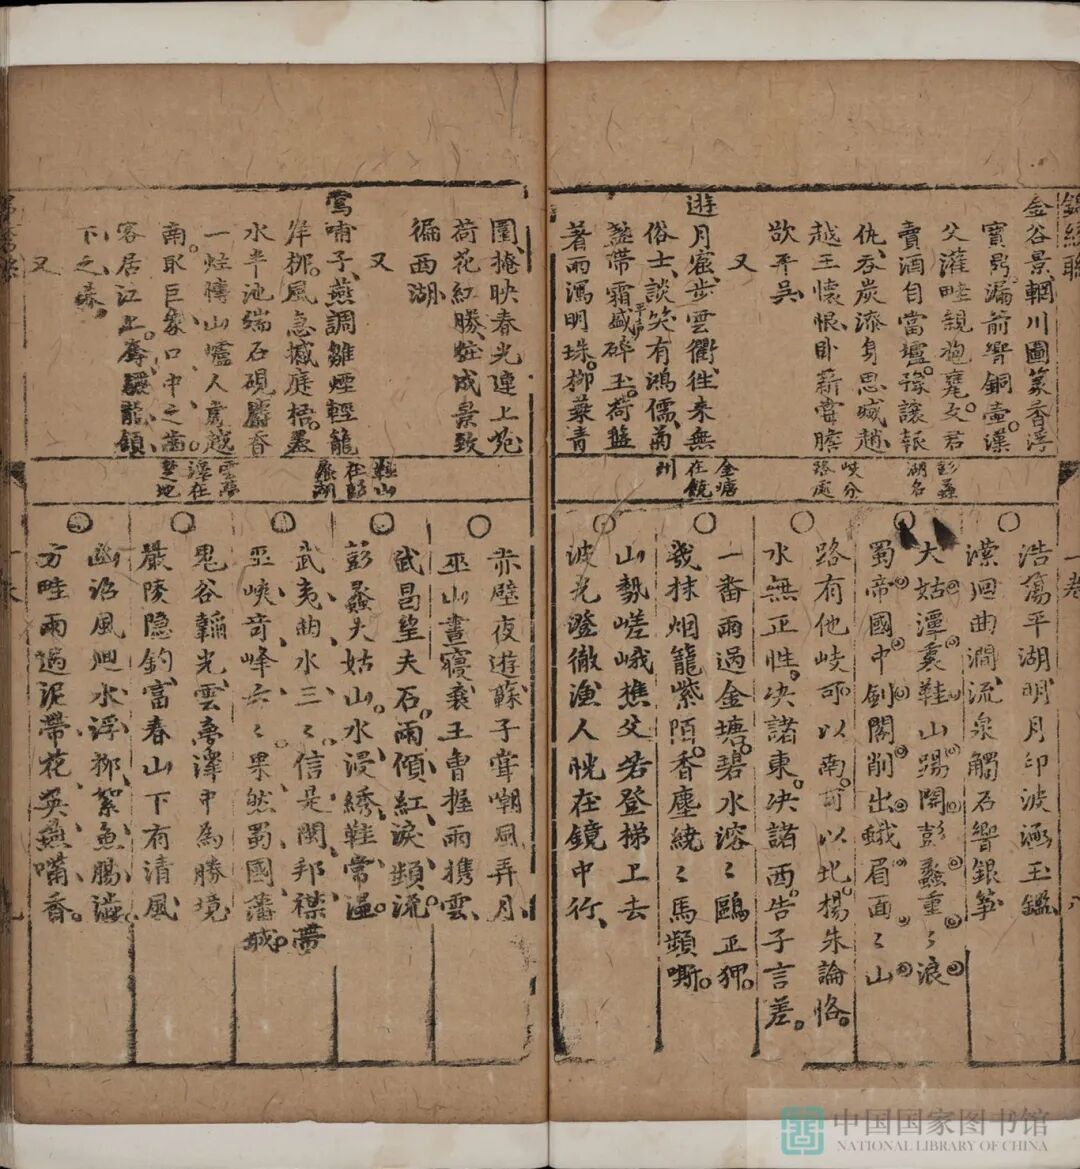 金谷景輞川圖篆香浮
寳鼎漏前響銅壺漢
父灌畦親抱甕文君
賣酒自當壚豫讓報
仇吞炭漆身思烕趙
越王懷恨卧薪嘗膽
欲平吳
又
遊月窟步雲衢往来無
俗士談笑有鴻儒菊
盞帶霜盛碎玉荷盤
著雨瀉明珠栁葉青
彭蠡
湖名
岐分
路處
金塘
在饒
州
浩蕩平湖明月印波涵玉鑑
潆洄曲澗流泉觸石響銀箏
大姑潭裏鞋山踢開彭蠡重〻浪
蜀帝國中劍閣削出蛾眉面〻山
路有他岐可以南可以北楊朱論恪
水無正性决諸東决諸西告子言差
一番雨過金塘碧水溶〻鷗正狎
幾抹烟籠紫陌香塵繞〻馬頻嘶
山勢嵯峨樵父若登梯上去
波光澄徹渔人恍在鏡中行
圍掩映春光連上苑
荷花紅勝粧成景致
徧西湖
又
鶯哺子燕調雛煙輕籠
岸栁風急撼庭梧墨
水半池端石硯麝香
一炷博山爐人爲越
南取巨象口中之齒
客居江上奪驪龍頷
下之珠
又
鞋山
在鄱
陽湖
雲夢
澤在
楚地
赤壁夜遊蘇子嘗嘲風弄月
巫山晝寢襄王曾握雨携雲
武昌望夫石雨傾紅淚頻流
彭蠡大姑山水浸綉鞋常濕
武夷曲水三〻信是閩邦襟帶
巫峽奇峰六〻果然蜀國藩城
鬼谷韜光雲夢澤中爲勝境
嚴陵隐釣富春山下有清風
幽沼風廻水浮栁絮魚腸澁
方畦雨過泥帶花英燕嘴香
中国国家图书馆
NATIONAL LIBRARY OF CHINA